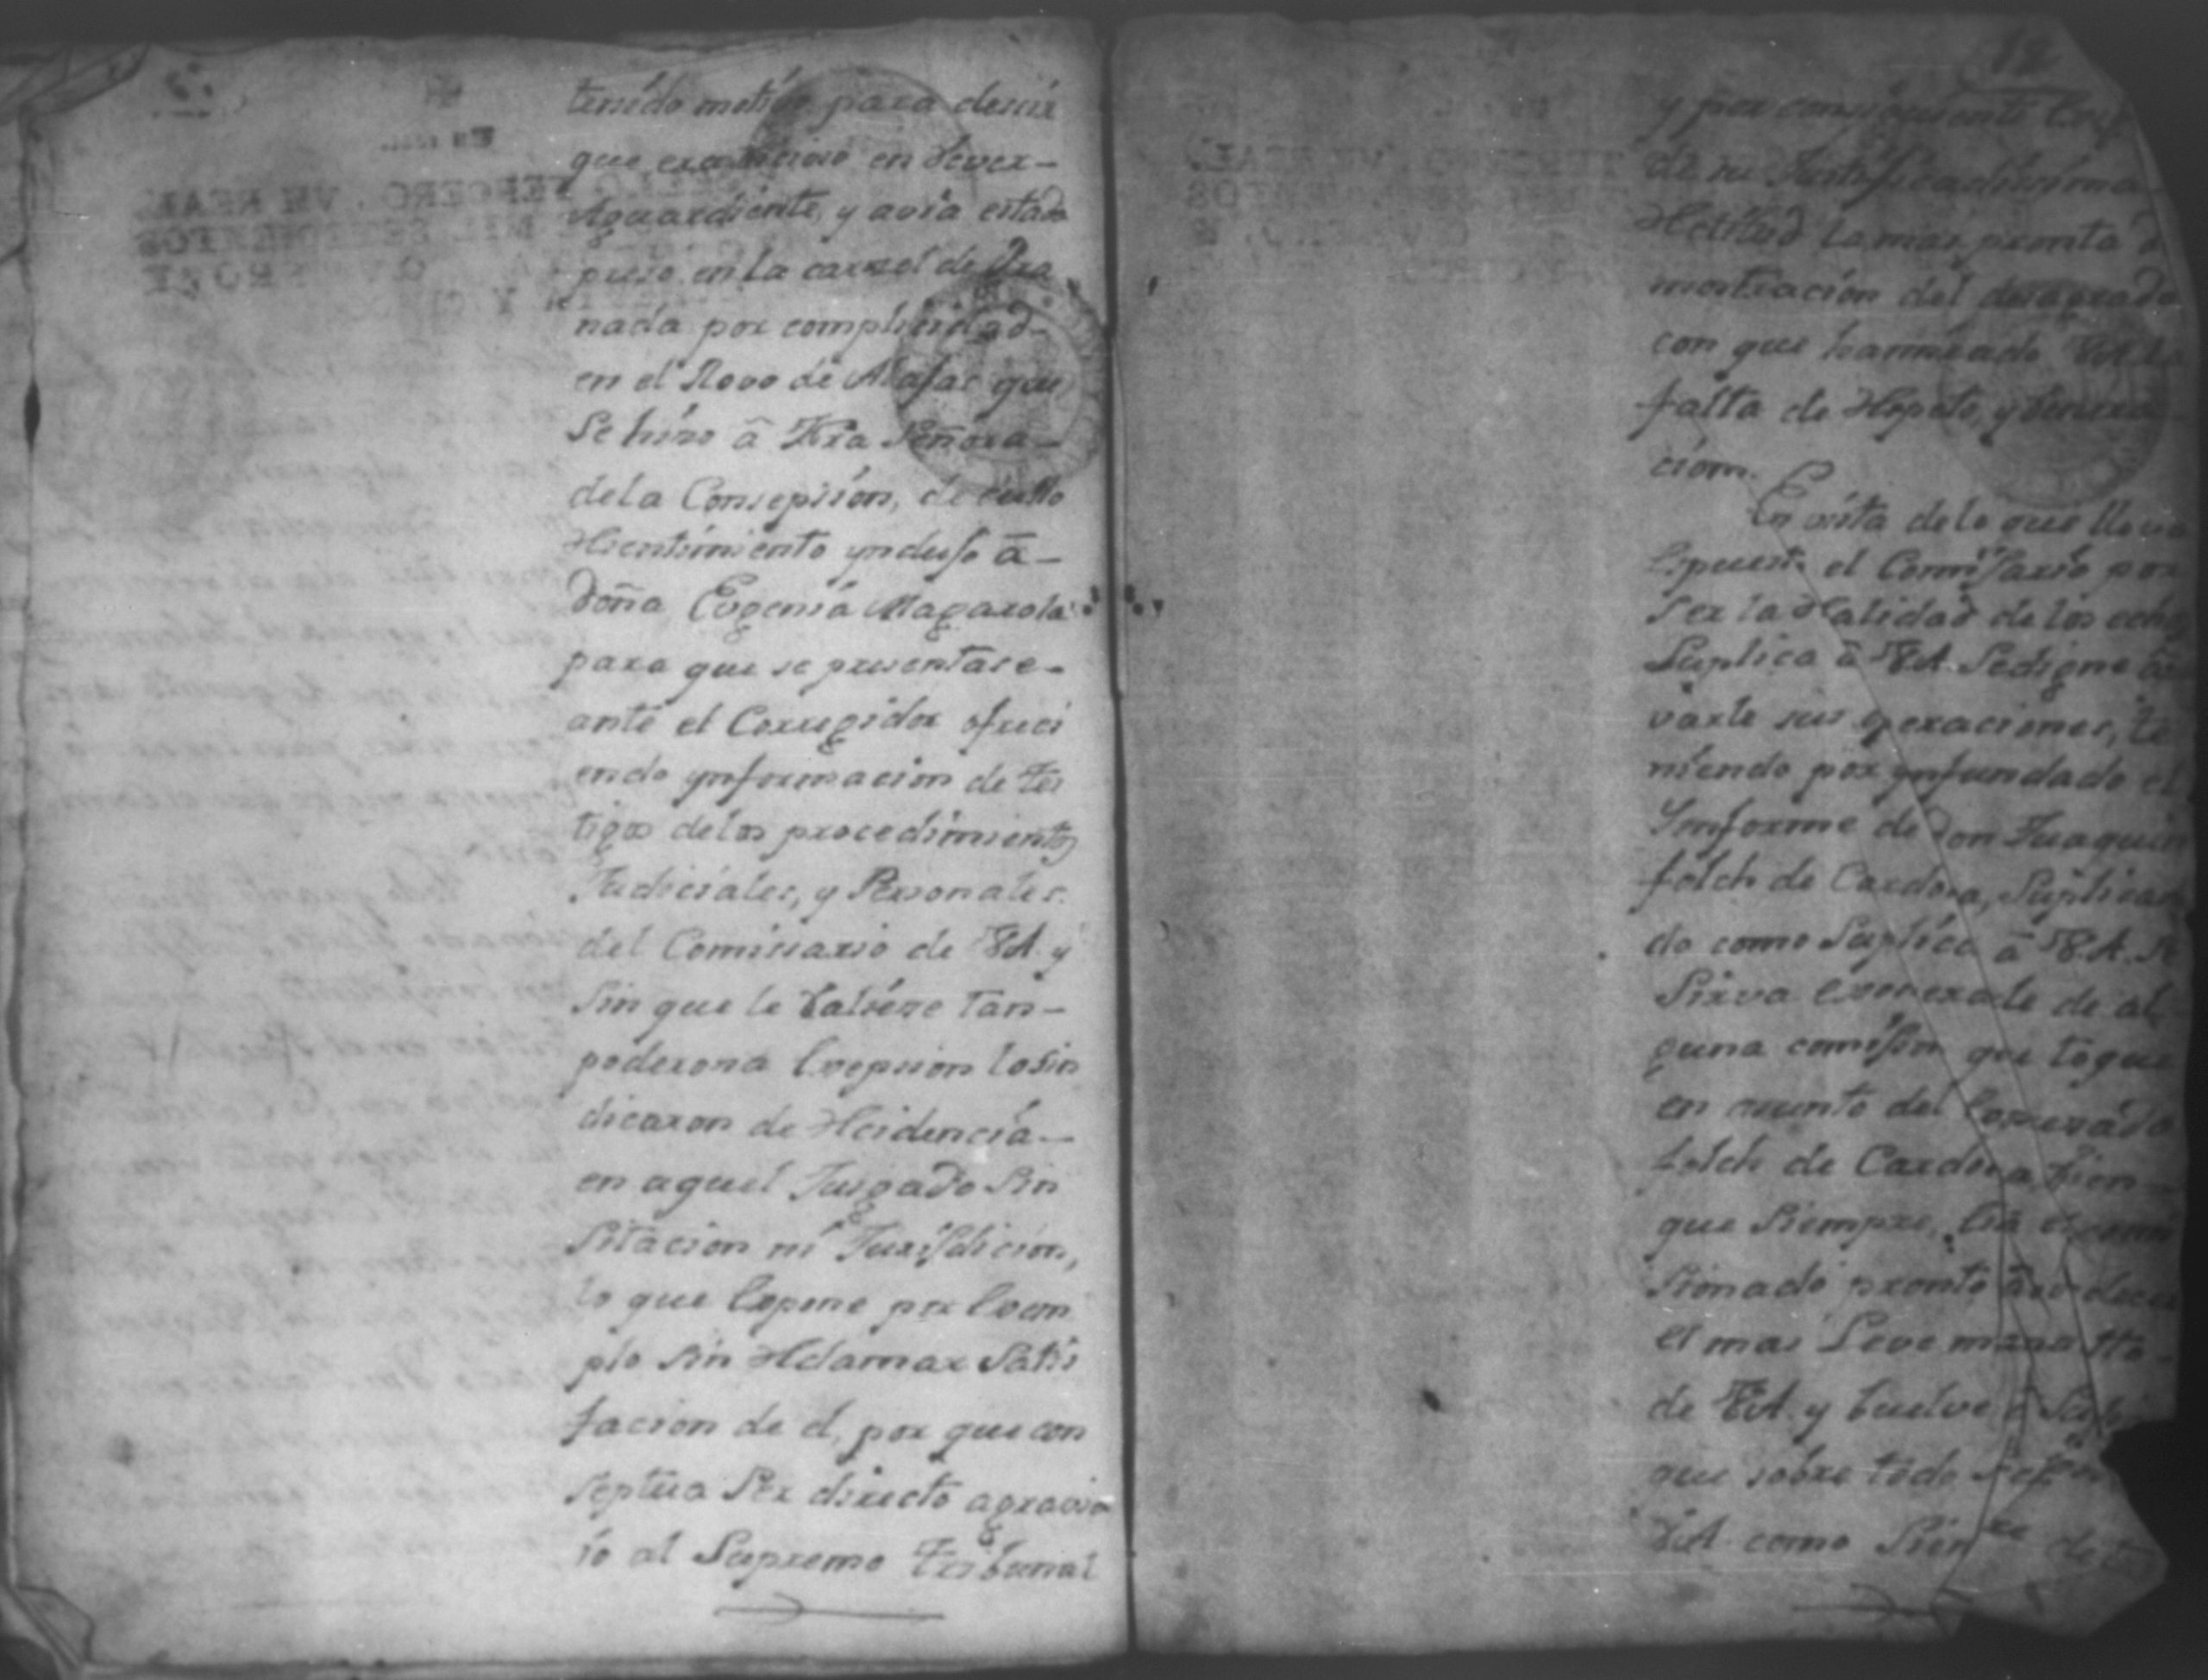 tenido motivo para desir
que era vicioso en vever
Aguardiente, y avia estado
preso en la carzel de Gra
nada por complicidad
en el Rovo de Alajas que
Se hizo â Nra Señora
dela Consepsion, de cullo
Resentimiento yndujo â
Doña Eugenia Magarola
para que se presentase
ante el Corregidor ofreci
endo ynformacion de tes
tigos delos procedimientos
Judiciales, y Personales
del Comissario de VA. y
sin que le valiese tan
poderosa Exepsion losin
dicaron de Residencia
en aquel Jusgado sin
Sitacion ni Jurisdicion,
lo que Expone por Exem
plo sin Reclamar Satis
facion de el, por que con
septua Ser directo agravio
io al Supremo Tribunal
12
y por consiguiente
de su Justificadisima
Rectitud la mas pronta
mostracion del desagrado
con que hamirado VA. la
falta de Respeto, y venera
cion.
En vista delo que lleva
Espuesto el Comisario por
Ser la Realidad de los
Suplica â VA. Sedigne
varle sus operaciones, te
niendo por ynfundado el
Ynforme de Don Juaquin
folch de Cardona, Suplican
do como Suplica â V.A. se
Sirva Exonerarle de al
guna comision que toque
en asunto del Expresado
folch de Cardona, bien
que Siempre, Esta el comi
sionado pronto
el mas Leve mandatto
de VA. y buelve â
que sobre todo
VA. como Siempre